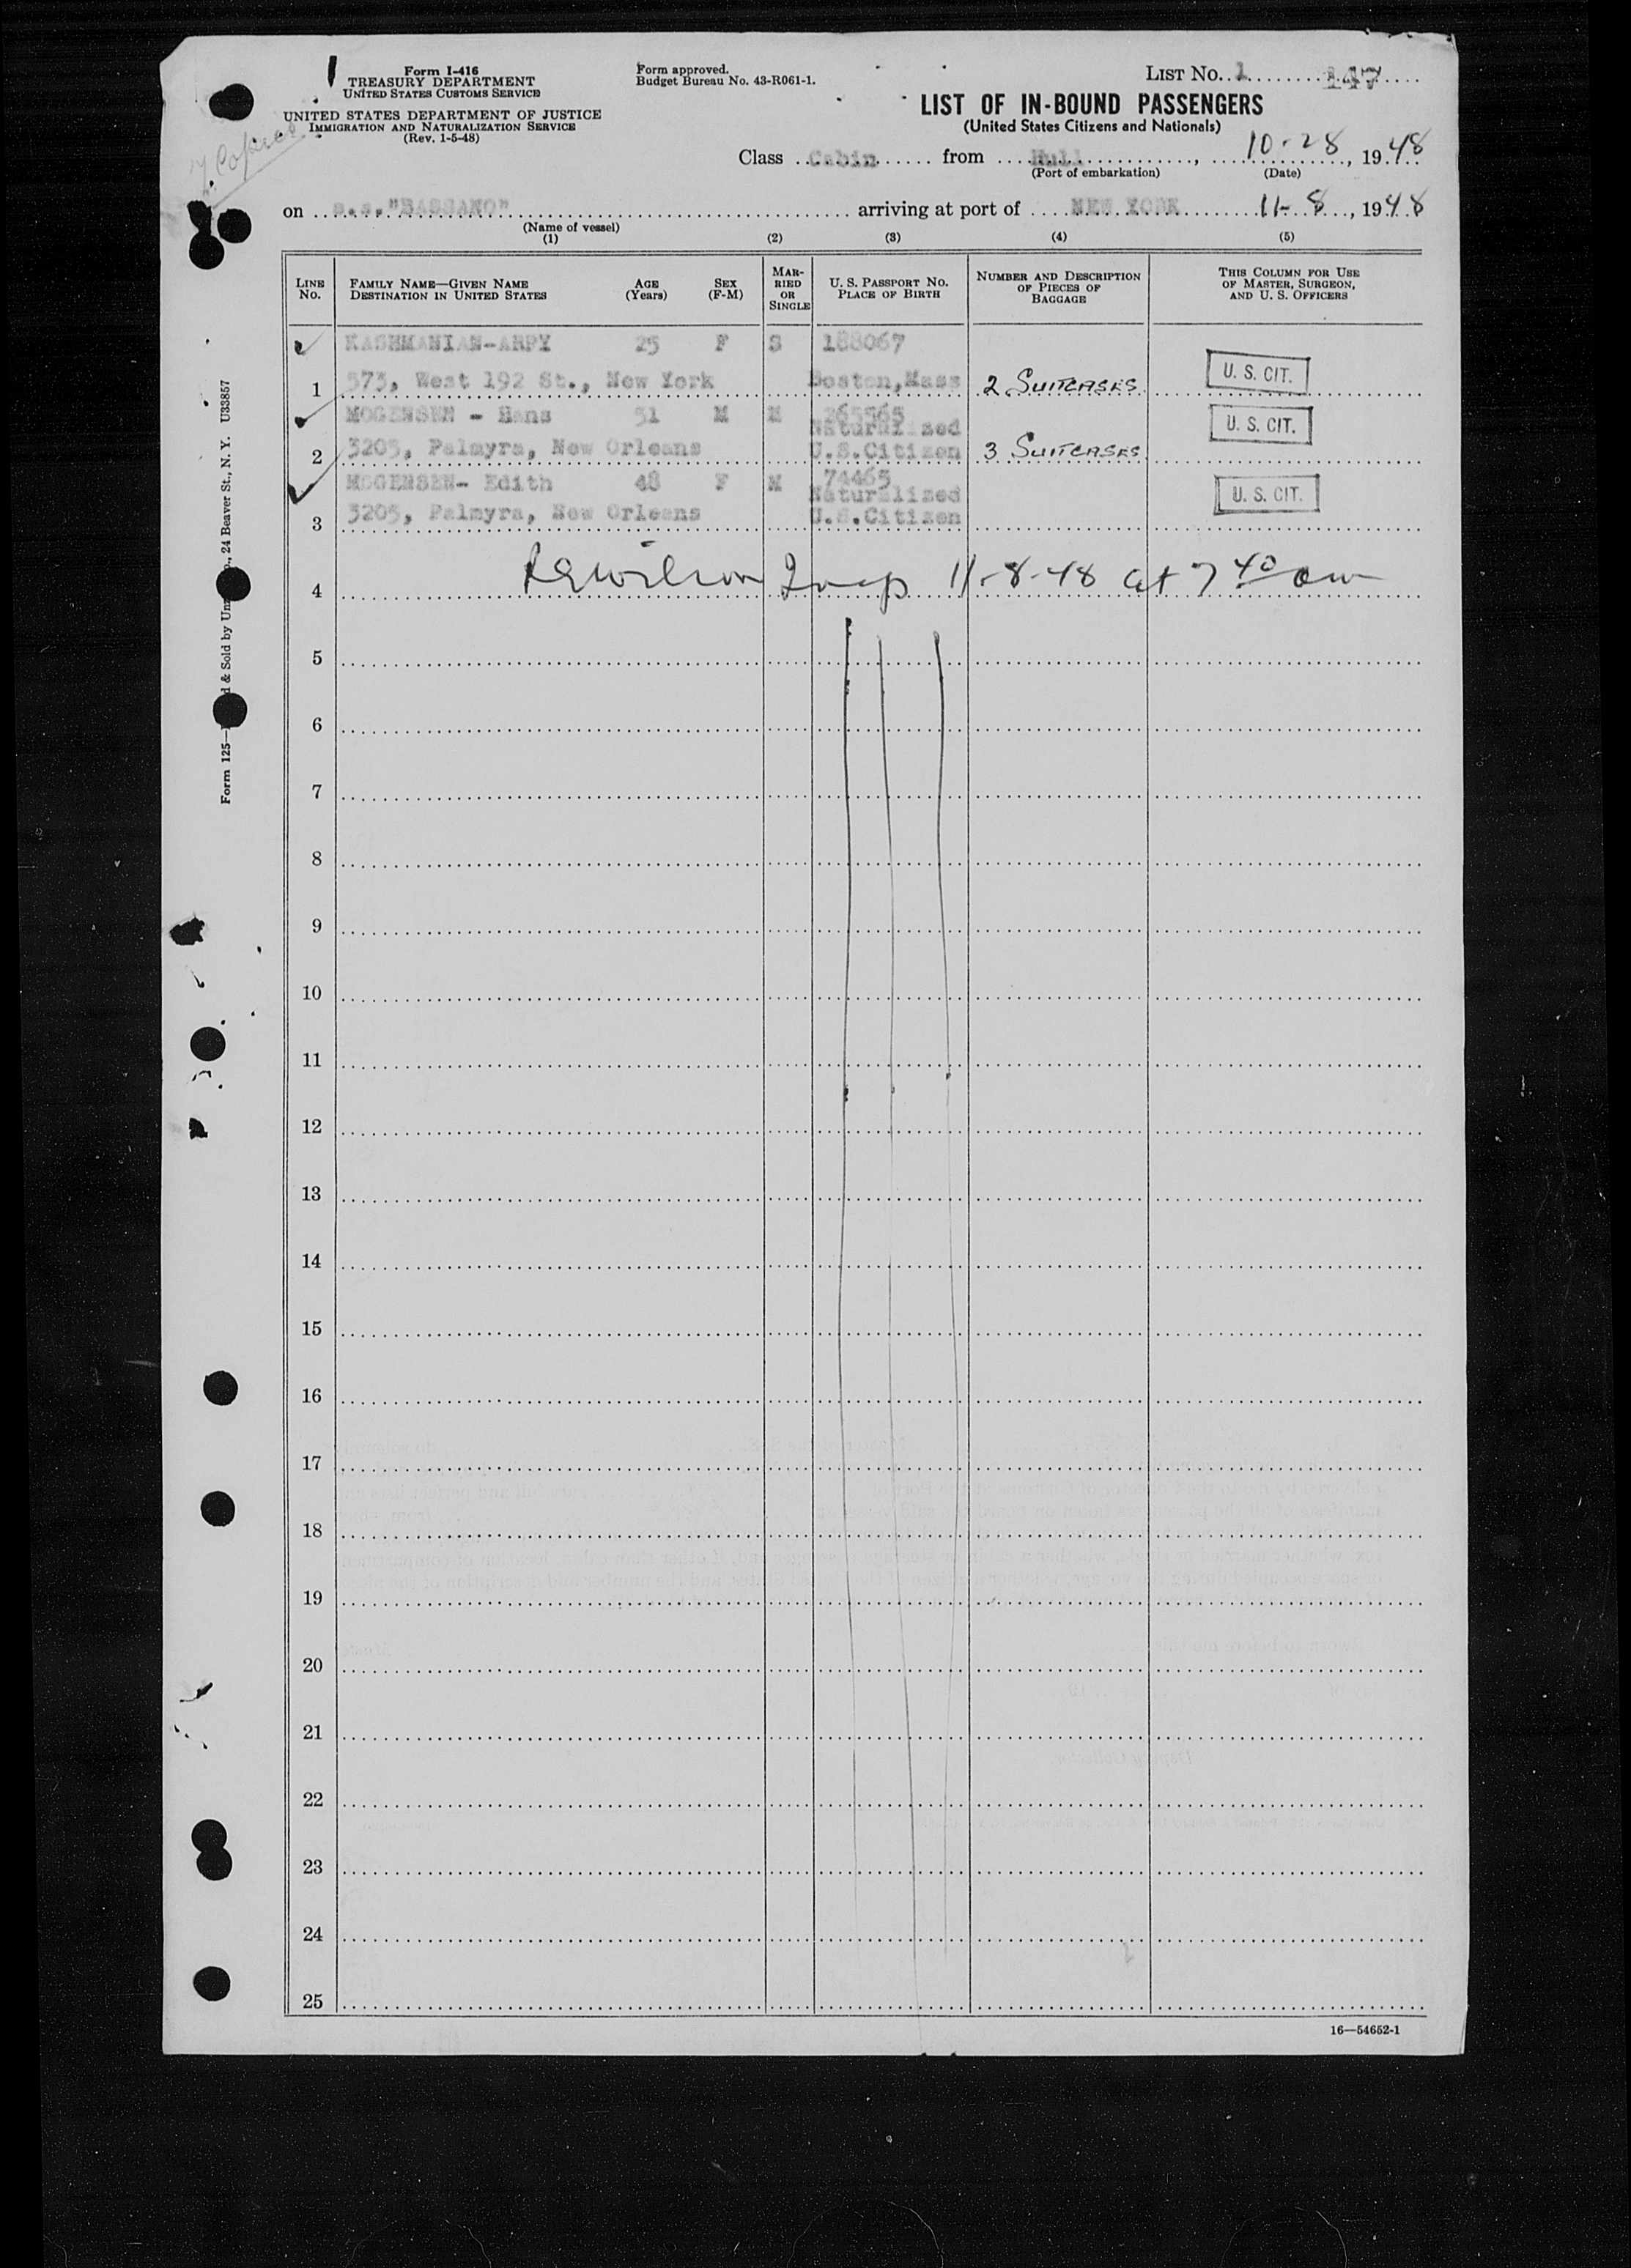 Form I-416
TREASURY DEPARTMENT
UNITED STATES CUSTOMS SERVICE
UNITED STATES DEPARTMENT OF JUSTICE
IMMIGRATION AND NATURALIZATION SERVICE
(Rev. 1-5-48)
Form approved.
Budget Bureau No. 43-R061-1.
LIST No. 1 147
LIST OF IN-BOUND PASSENGERS
(United States Citizens and Nationals)
Class Cabin from Hull, 10-28, 1948
(Port of embarkation) (Date)
on s.s. "BASSANO" arriving at port of NEW YORK 11-8, 1948
(Name of vessel)
(1) (2) (3) (4) (5)
LINE No.
FAMILY NAME—GIVEN NAME
DESTINATION IN UNITED STATES
AGE (Years)
SEX (F-M)
MARRIED OR SINGLE
U. S. PASSPORT No.
PLACE OF BIRTH
NUMBER AND DESCRIPTION OF PIECES OF BAGGAGE
THIS COLUMN FOR USE OF MASTER, SURGEON, AND U. S. OFFICERS
KASHMANIAN-ARPY 25 F S 188067
1 573, West 192 St., New York Boston, Mass 2 SUITCASES U. S. CIT.
MOGENSEN - Hans 51 M M
Naturalized
2 3205, Palmyra, New Orleans U.S.Citizen 3 SUITCASES U. S. CIT.
MOGENSEN- Edith 48 F M 74465
Naturalized
3 3205, Palmyra, New Orleans U.S.Citizen U. S. CIT.
4 11-8-48 at 7 40 am
5
6
7
8
9
10
11
12
13
14
15
16
17
18
19
20
21
22
23
24
25
16—54652-1
24 Beaver St., N. Y. U33857
Form 125—
& Sold by